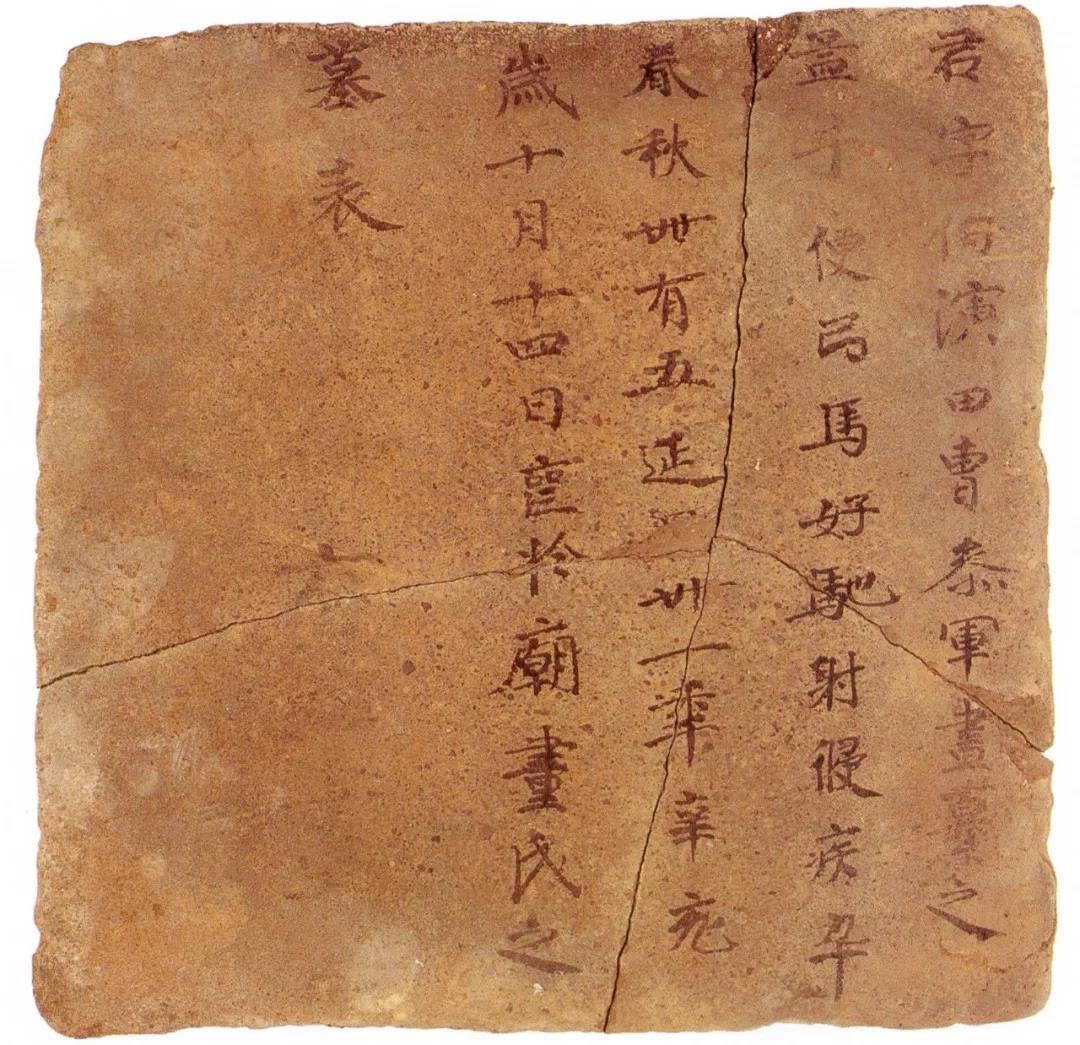 君字伯演田曹叅軍畫纂之
孟子便弓馬好馳射疾卒
春秋卅有五延昌卅一年辛亥
歲十月十四日喪於廟畫氏之
墓表